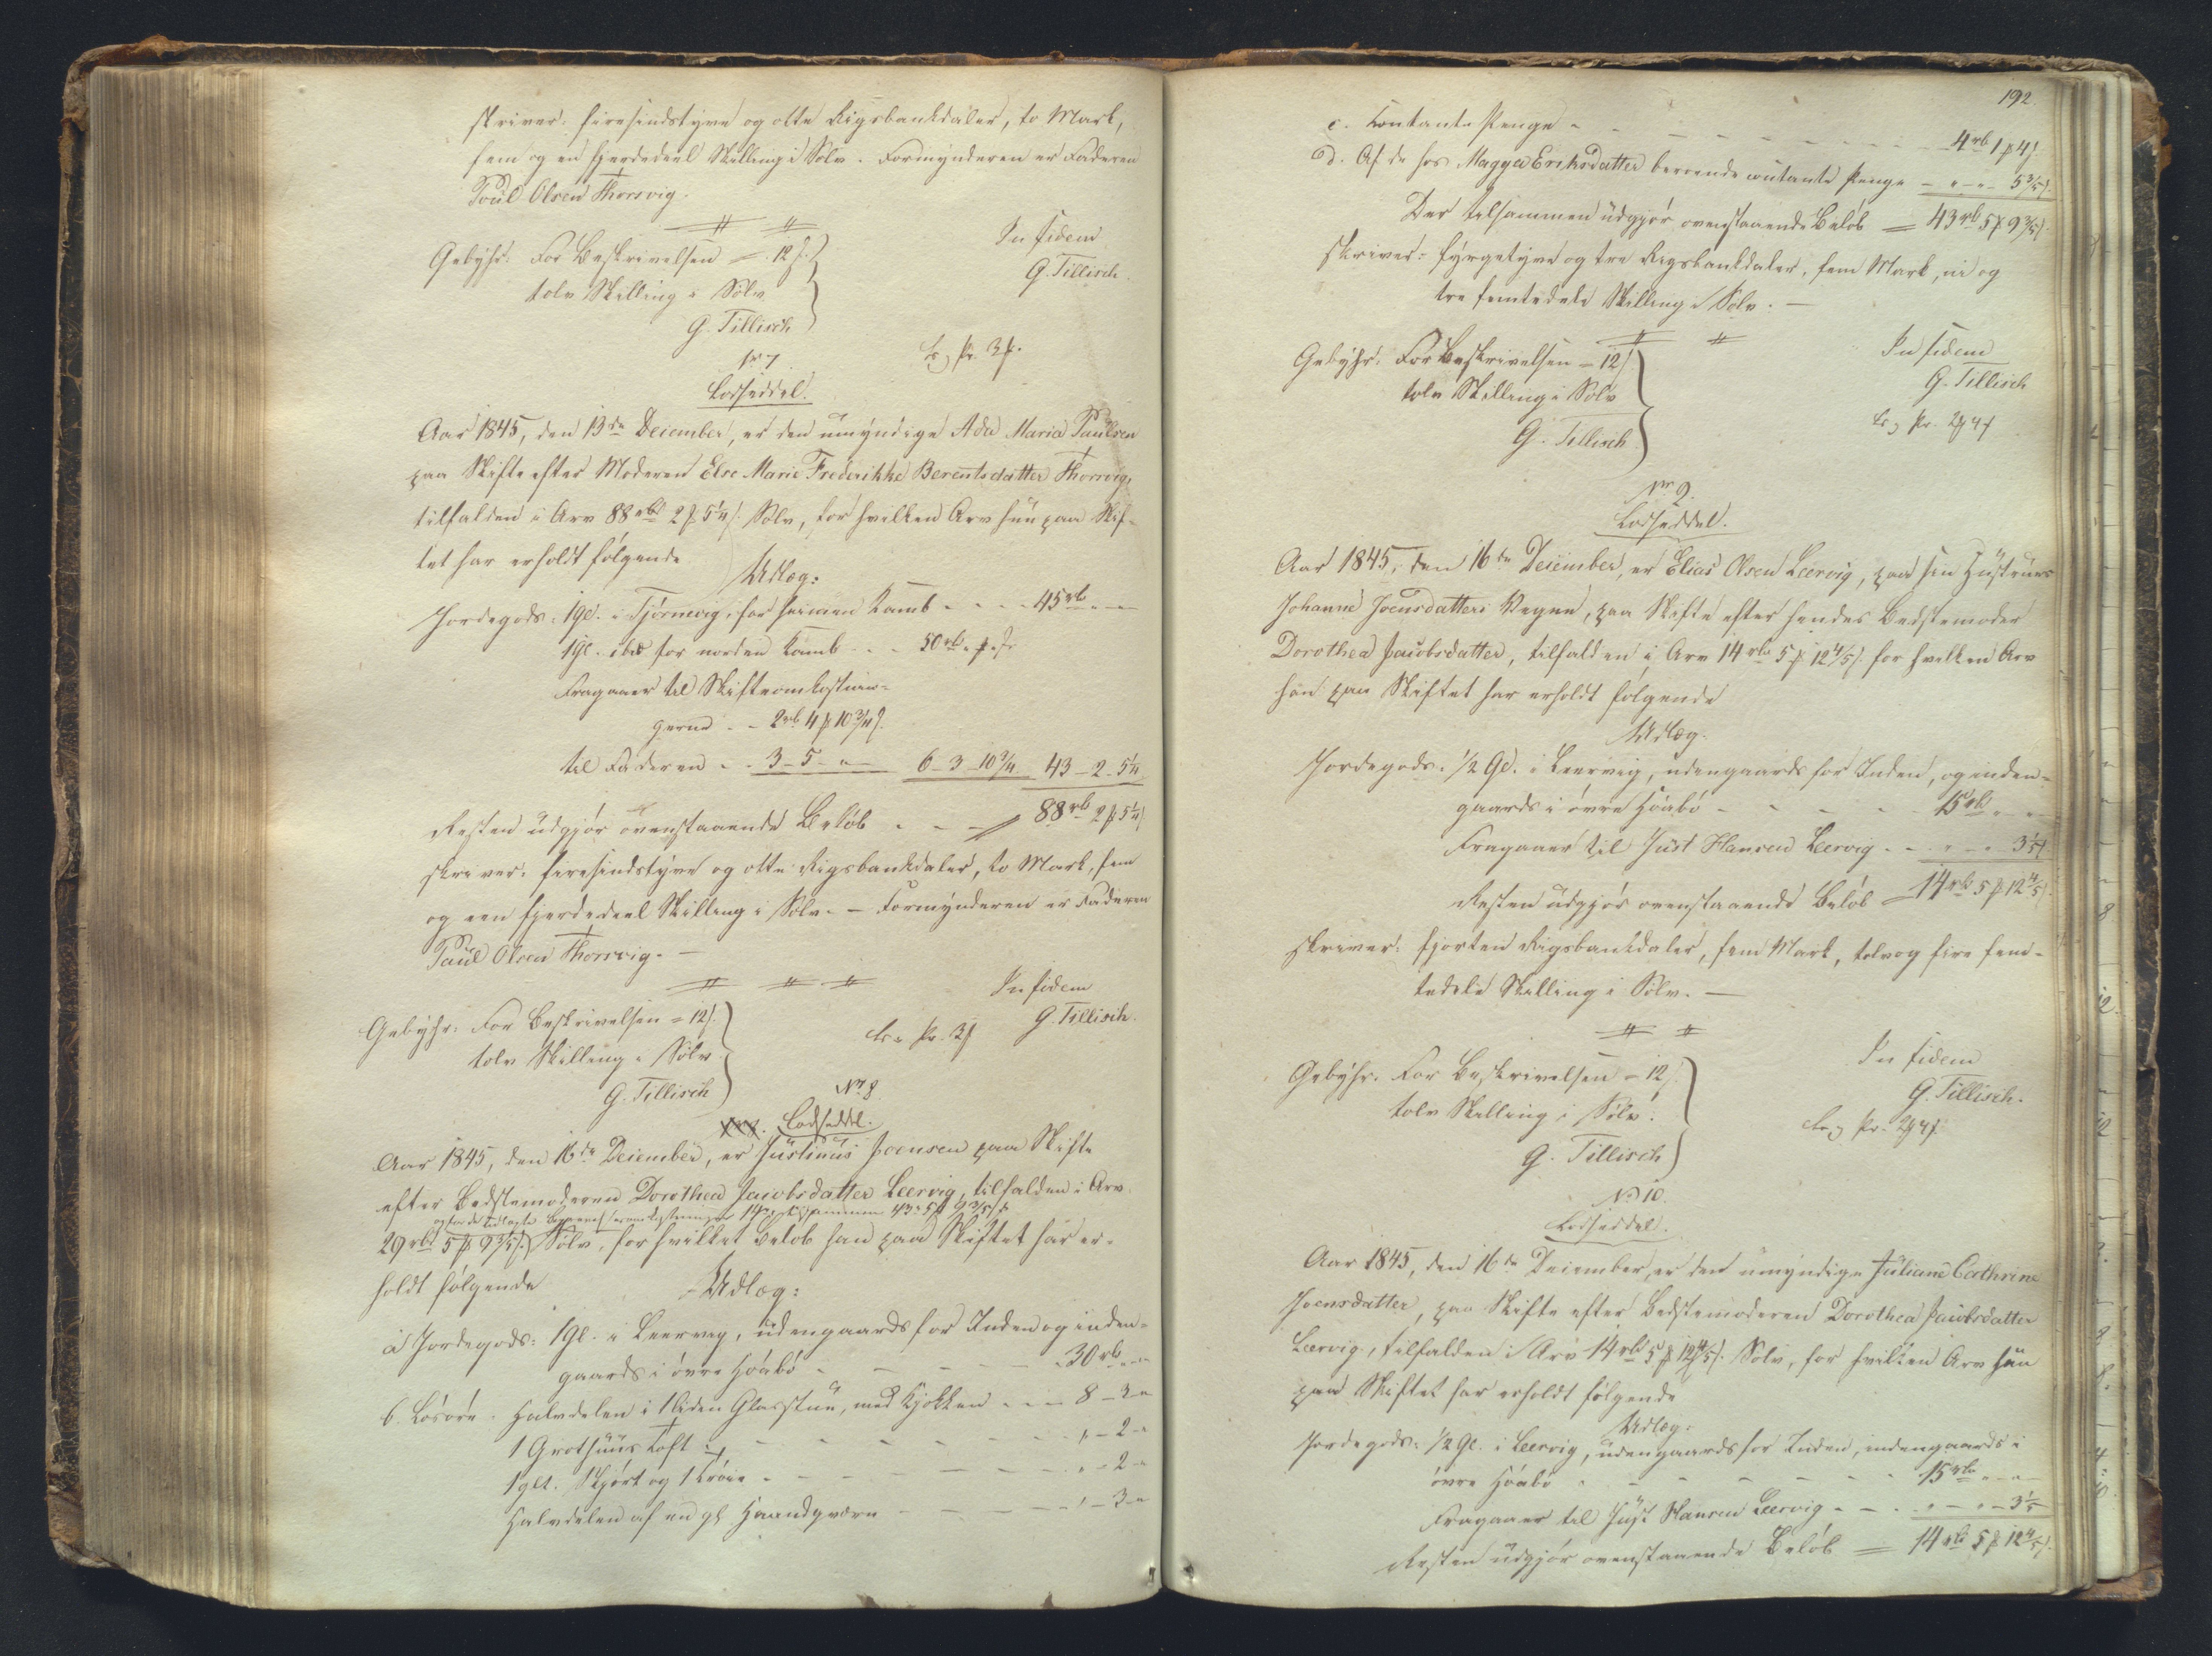 skriver: firesindstyve og otte Rigsbankdaler, to Mark,
fem og en fjerdedeel Skilling i Sølv. Formynderen er Faderen
Poul Olsen Thorsvig.
Gebyhr: For Beskrivelsen = 12 s.
tolv Skilling i Sølv
G. Tillisch
In fidem
G. Tillisch.
No 7
Lodseddel.
Aar 1845, den 13de December, er den umyndige Ada Maria Paulsen
paa Skifte efter Moderen Else Marie Frederikke Berentsdatter Thorsvig,
tilfalden i Arv 88 rbd 2 p 5 1/4 s. Sølv, for hvilken Arv hun paa Skif-
tet har erholdt følgende
Udlæg:
Jordegods: 1 Gl. i Tjørnevig, for sunnen Kamb - - - 45 rb " "
1 Gl. ibd for norden Kamb - - 50 rb " p " s
Fragaaer til Skifteomkostnin-
gerne - - 2 rb 4 p 10 3/4 s.
til Faderen - - 3 - 5 - " 6 - 3 - 10 3/4 43 - 2 - 5 1/4
Resten udgjør ovenstaaende Beløb - - 88 rb 2 p 5 1/4 s
skriver: firesindstyve og otte Rigsbankdaler, to Mark, fem
og een fjerdedeel Skilling i Sølv. - Formynderen er Faderen
Paul Olsen Thorsvig. -
Gebyhr: For Beskrivelsen = 12 s.
tolv Skilling i Sølv
G. Tillisch
In fidem
G. Tillisch.
No 8
Lodseddel.
Aar 1845, den 16de December, er Justinus Joensen paa Skifte
efter Bedstemoderen Dorothea Jacobsdatter Leervig, tilfalden i Arv
29 rbd 5 p 9 3/5 s. Sølv, for hvilket Beløb han paa Skiftet har er-
holdt følgende
Udlæg:
a Jordegods: 1 Gl. i Leervig, udengaards for Inden og inden-
gaards i øvre Høabø - - - 30 rb " "
b. Løsøre. Halvdelen i 1 liden Glasstue, med Kjøkken - - - 8 - 3 "
1 Grothuus Loft - - - " - 2 - "
1 glt. Skjørt og 1 Trøie - - - " - 2 - "
Halvdelen af en gl. Haandqværn - - - " - 3 - "
192.
c. Contante Penge - - - 4 rb 1 p 4 s.
d. Af de hos Magga Eriksdatter beroende contante Penge - " - " - 5 3/5 s.
Der tilsammen udgjør ovenstaaende Beløb = 43 rb 5 p 9 3/5 s.
skriver: fyrgetyve og tre Rigsbankdaler, fem Mark, ni og
tre femtedele Skilling i Sølv. -
Gebyhr: For Beskrivelsen = 12 s
tolv Skilling i Sølv
G. Tillisch
In fidem
G. Tillisch
No 9.
Lodseddel.
Aar 1845, den 16de December, er Elias Olsen Leervig, paa sin Hustrues
Johanne Joensdatters Vegne, paa Skifte efter hendes Bedstemoder
Dorothea Jacobsdatter, tilfalden i Arv 14 rbd 5 p 12 4/5 s. for hvilken Arv
han paa Skiftet har erholdt følgende
Udlæg.
Jordegods: 1/2 Gl. i Leervig, udengaards for Inden, og inden-
gaards i øvre Høabø - - - 15 rb " "
Fragaaer til Just Hansen Leervig - - " - " 3 1/5 s
Resten udgjør ovenstaaende Beløb = 14 rb 5 p 12 4/5 s.
skriver: fjorten Rigsbankdaler, fem Mark, tolv og fire fem-
tedele Skilling i Sølv. -
Gebyhr: For Beskrivelsen = 12 s
tolv Skilling i Sølv.
G. Tillisch
In fidem
G. Tillisch.
No 10.
Lodseddel.
Aar 1845, den 16de December, er den umyndige Juliane Cathrine
Joensdatter, paa Skifte efter Bedstemoderen Dorothea Jacobsdatter
Leervig, tilfalden i Arv 14 rbd 5 p 12 4/5 s. Sølv, for hvilken Arv hun
paa Skiftet har erholdt følgende
Udlæg:
Jordegods: 1/2 Gl. i Leervig, udengaards for Inden, indengaards i
øvre Høabø - - - 15 rb " "
Fragaaer til Just Hansen Leervig - - " - " - 3 1/5
Resten udgjør ovenstaaende Beløb = 14 rb 5 p 12 4/5 s.